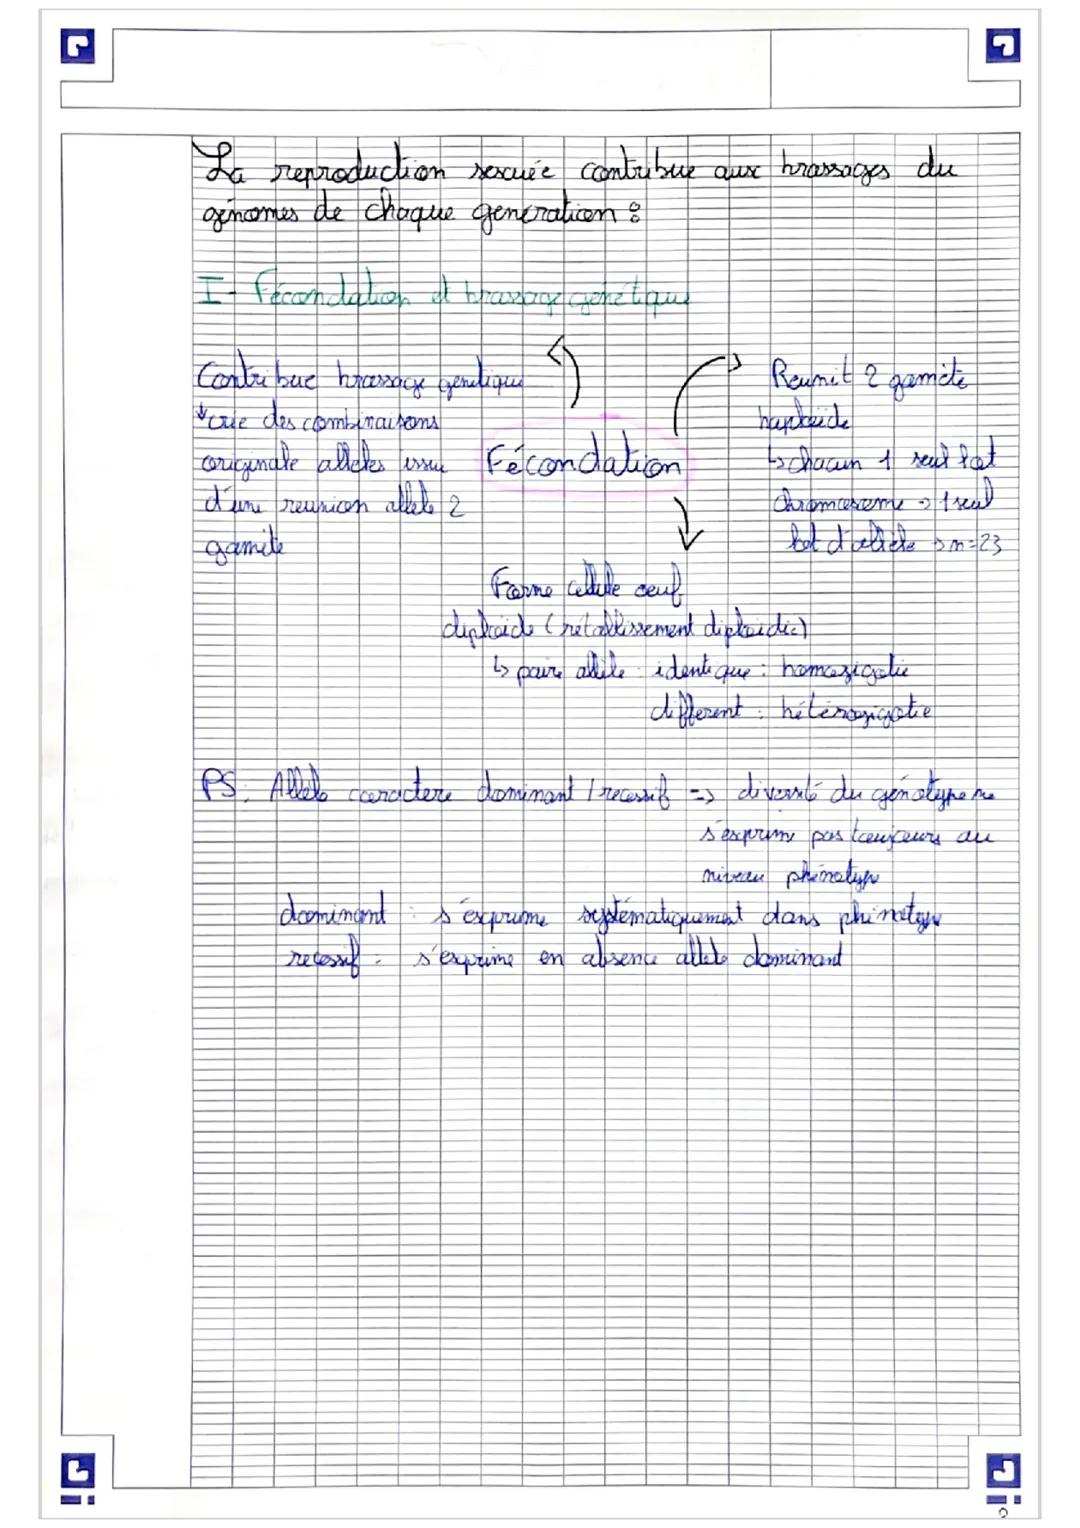 La reproduction sexuée contribue aux brassages du
génomes de chaque generation :
I - Fécondation et brassage génétique
Contribue brassage génétique
↓ crée des combinaisons
originale alleles issu
d'une reunion allele 2
gamète
Fécondation
Reunit 2 gamète
haploïde
↳ chacun 1 seul lot
chromosome → 1 seul
lot d'allèle → n=23
Forme cellule oeuf
diploïde (rétablissement diploïdie)
↳ paire allèle : identique : homozigotie
different : hétérozigotie
PS : Allele caractere dominant / recessif => diversité du génotype ne
s'exprime pas toujours au
niveau phénotype
dominant : s'exprime systématiquement dans phénotype
recessif : s'exprime en absence allele dominant